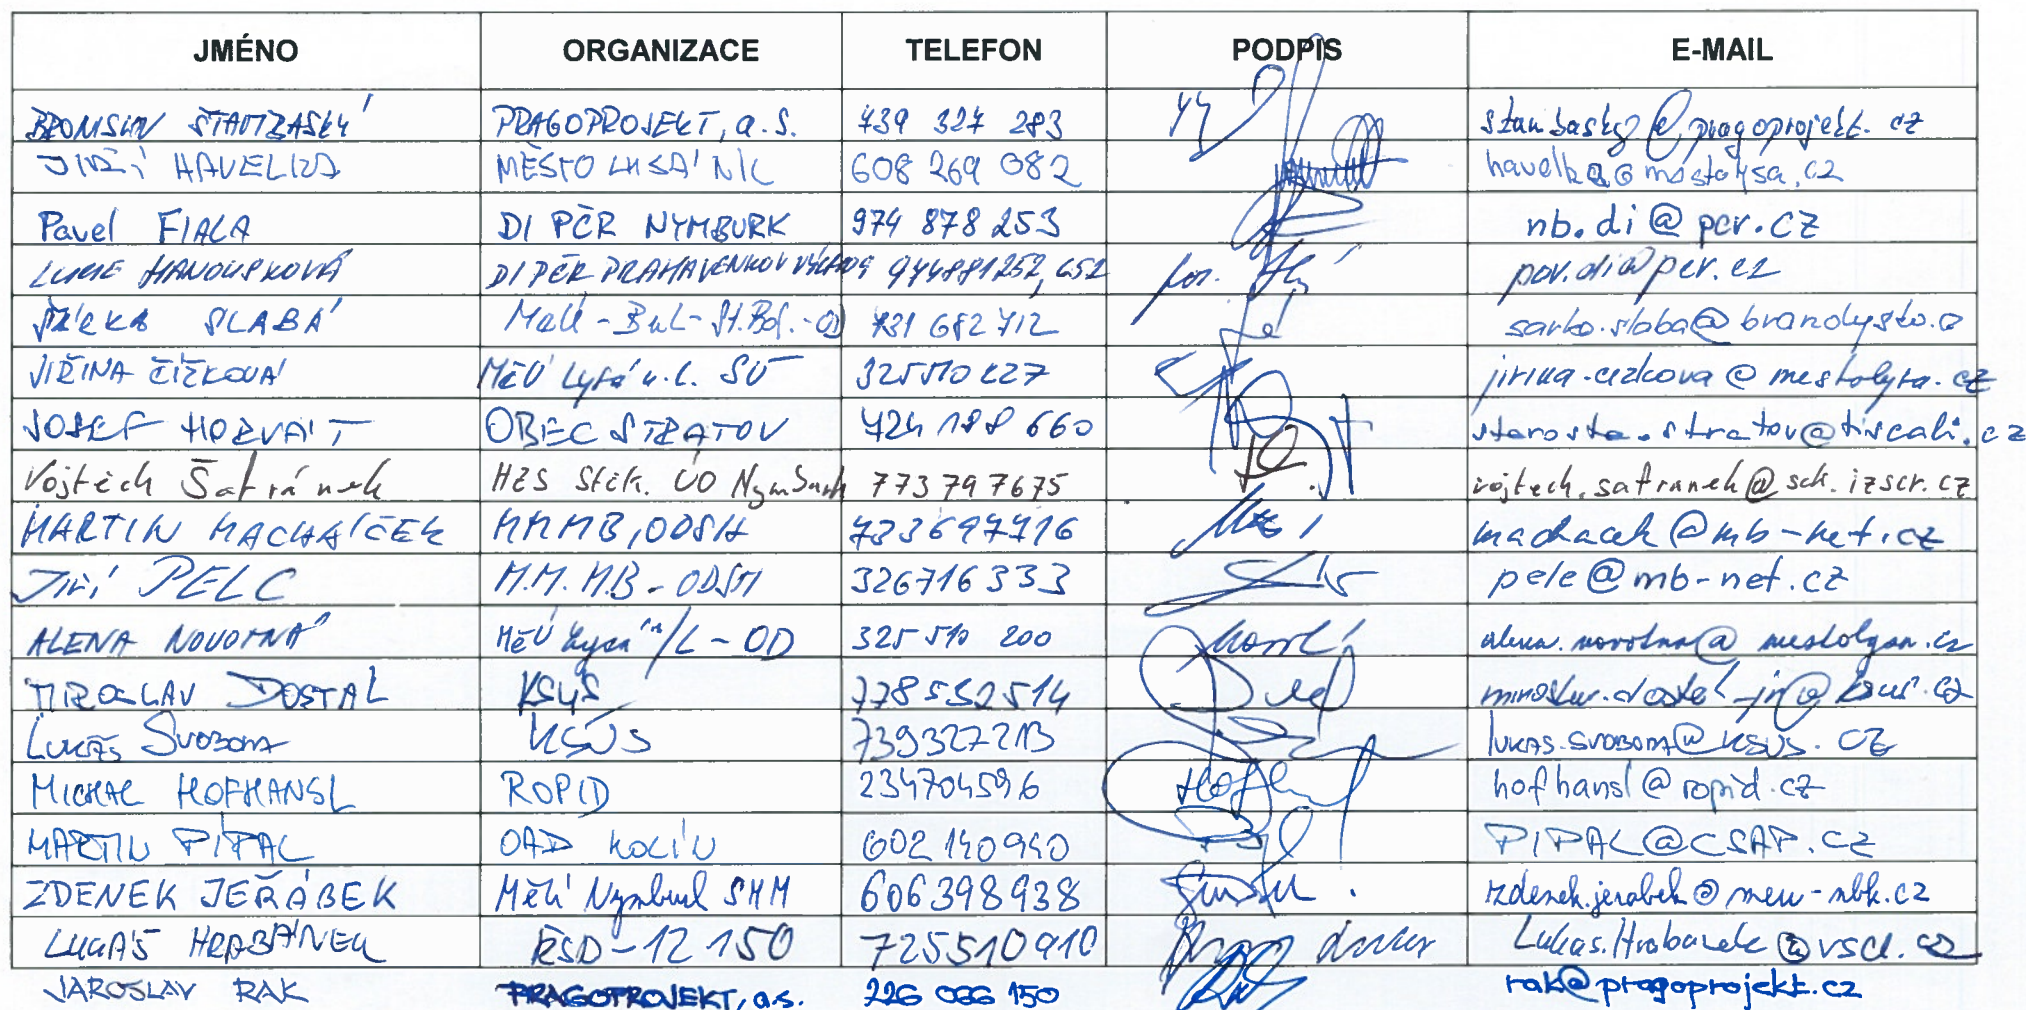 JMÉNO ORGANIZACE TELEFON PODPIS E-MAIL
PRAGOPROJEKT, a.s. 739 327 283 @pragoprojekt.cz
JIŘÍ HAVELKA MĚSTO LYSÁ N/L 608 269 082 havelka@mestolysa.cz
Pavel FIALA DI PČR NYMBURK 974 878 253 nb.di@pcr.cz
LUCIE HANOUSKOVÁ DI PČR PRAHA VENKOV VÝCHOD 974881252, 652 pov.di@pcr.cz
ŠÁRKA SLABÁ 731 682 712
JIŘINA ČÍŽKOVÁ MěÚ Lysá n.L. SÚ 325510227 jirina.cizkova@mestolysa.cz
JOSEF HORVÁT OBEC STRATOV 724 188 660 starosta.stratov@tiscali.cz
Vojtěch Šafránek HZS Stčk. ÚO Nymburk 773797675 vojtech.safranek@sck.izscr.cz
MARTIN MACHÁČEK MMMB, ODSH 733697716 machacek@mb-net.cz
Jiří PELC M.M. M.B - ODSH 326716333 pelc@mb-net.cz
ALENA NOVOTNÁ MěÚ Lysá n/L - OD 325 510 200 alena.novotna@mestolysa.cz
MIROSLAV DOSTÁL KSÚS 778532514 miroslav.dostal-jr@ksus.cz
LUKÁŠ SVOBODA KSÚS 739327213 lukas.svoboda@ksus.cz
MICHAL HOFHANSL ROPID 234704596 hofhansl@ropid.cz
MARTIN PÍPAL OAD KOLÍN 602 140940 PIPAL@CSAP.CZ
ZDENEK JEŘÁBEK MěÚ Nymburk SMM 606398938 zdenek.jerabek@meu-nbk.cz
LUKÁŠ HRABÁNEK ŘSD-12 150 725510910
JAROSLAV RAK PRAGOPROJEKT, a.s. 226 066 150 rak@pragoprojekt.cz